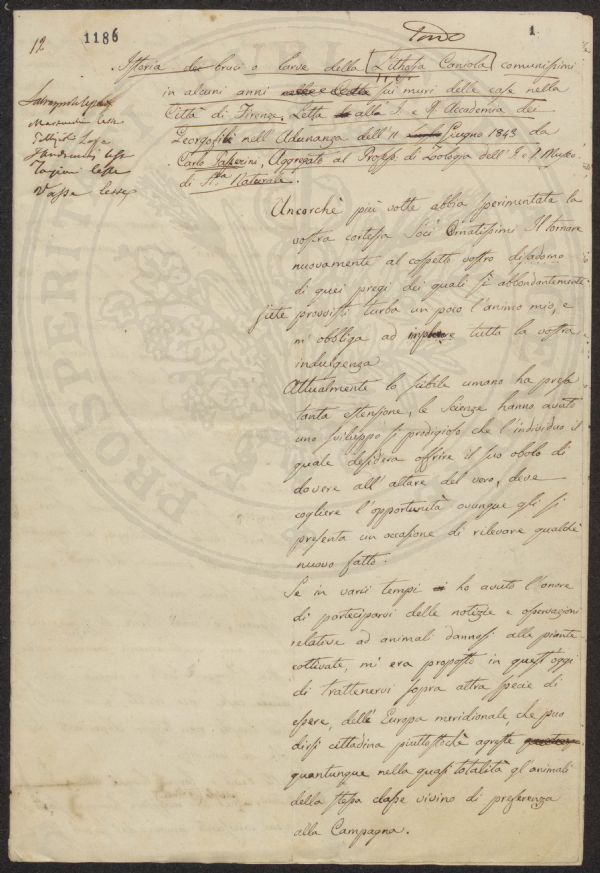 12.
1186
Tomo
1
Istoria dei bruci o larve della Lithosia Caniola comunissimi
in alcuni anni sui muri delle case nella
Città di Firenze, Letta alla I. e R. Accademia dei
Georgofili nell'Adunanza dell'11 Giugno 1843 da
Carlo Passerini, Aggregato al Profess. di Zoologia dell'I. e R. Museo
di Sta. Naturale.
Ancorchè più volte abbia sperimentata la
vostra cortesia Socj Ornatissimi Il tornare
nuovamente al cospetto vostro disadorno
di quei pregi dei quali sì abbondantemente
siete provvisti turba un poco l'animo mio, e
m'obbliga ad tutta la vostra
indulgenza
Attualmente lo scibile umano ha presa
tanta estensione, le Scienze hanno avuto
uno sviluppo sì prodigioso che l'individuo il
quale desidera offrire il suo obolo di
dovere all'altare del vero, deve
cogliere l'opportunità ovunque gli si
presenta un occasione di rilevare qualche
nuovo fatto.
Se in varii tempi ho avuto l'onore
di parteciparvi delle notizie e osservazioni
relative ad animali dannosi alle piante
coltivate, m'era proposto in quest'oggi
di trattenervi sopra altra specie di
essere, dell'Europa meridionale, che può
dirsi cittadina piuttostochè agreste
quantunque nella quasi totalità gl'animali
della stessa classe vivino di preferenza
alla Campagna.